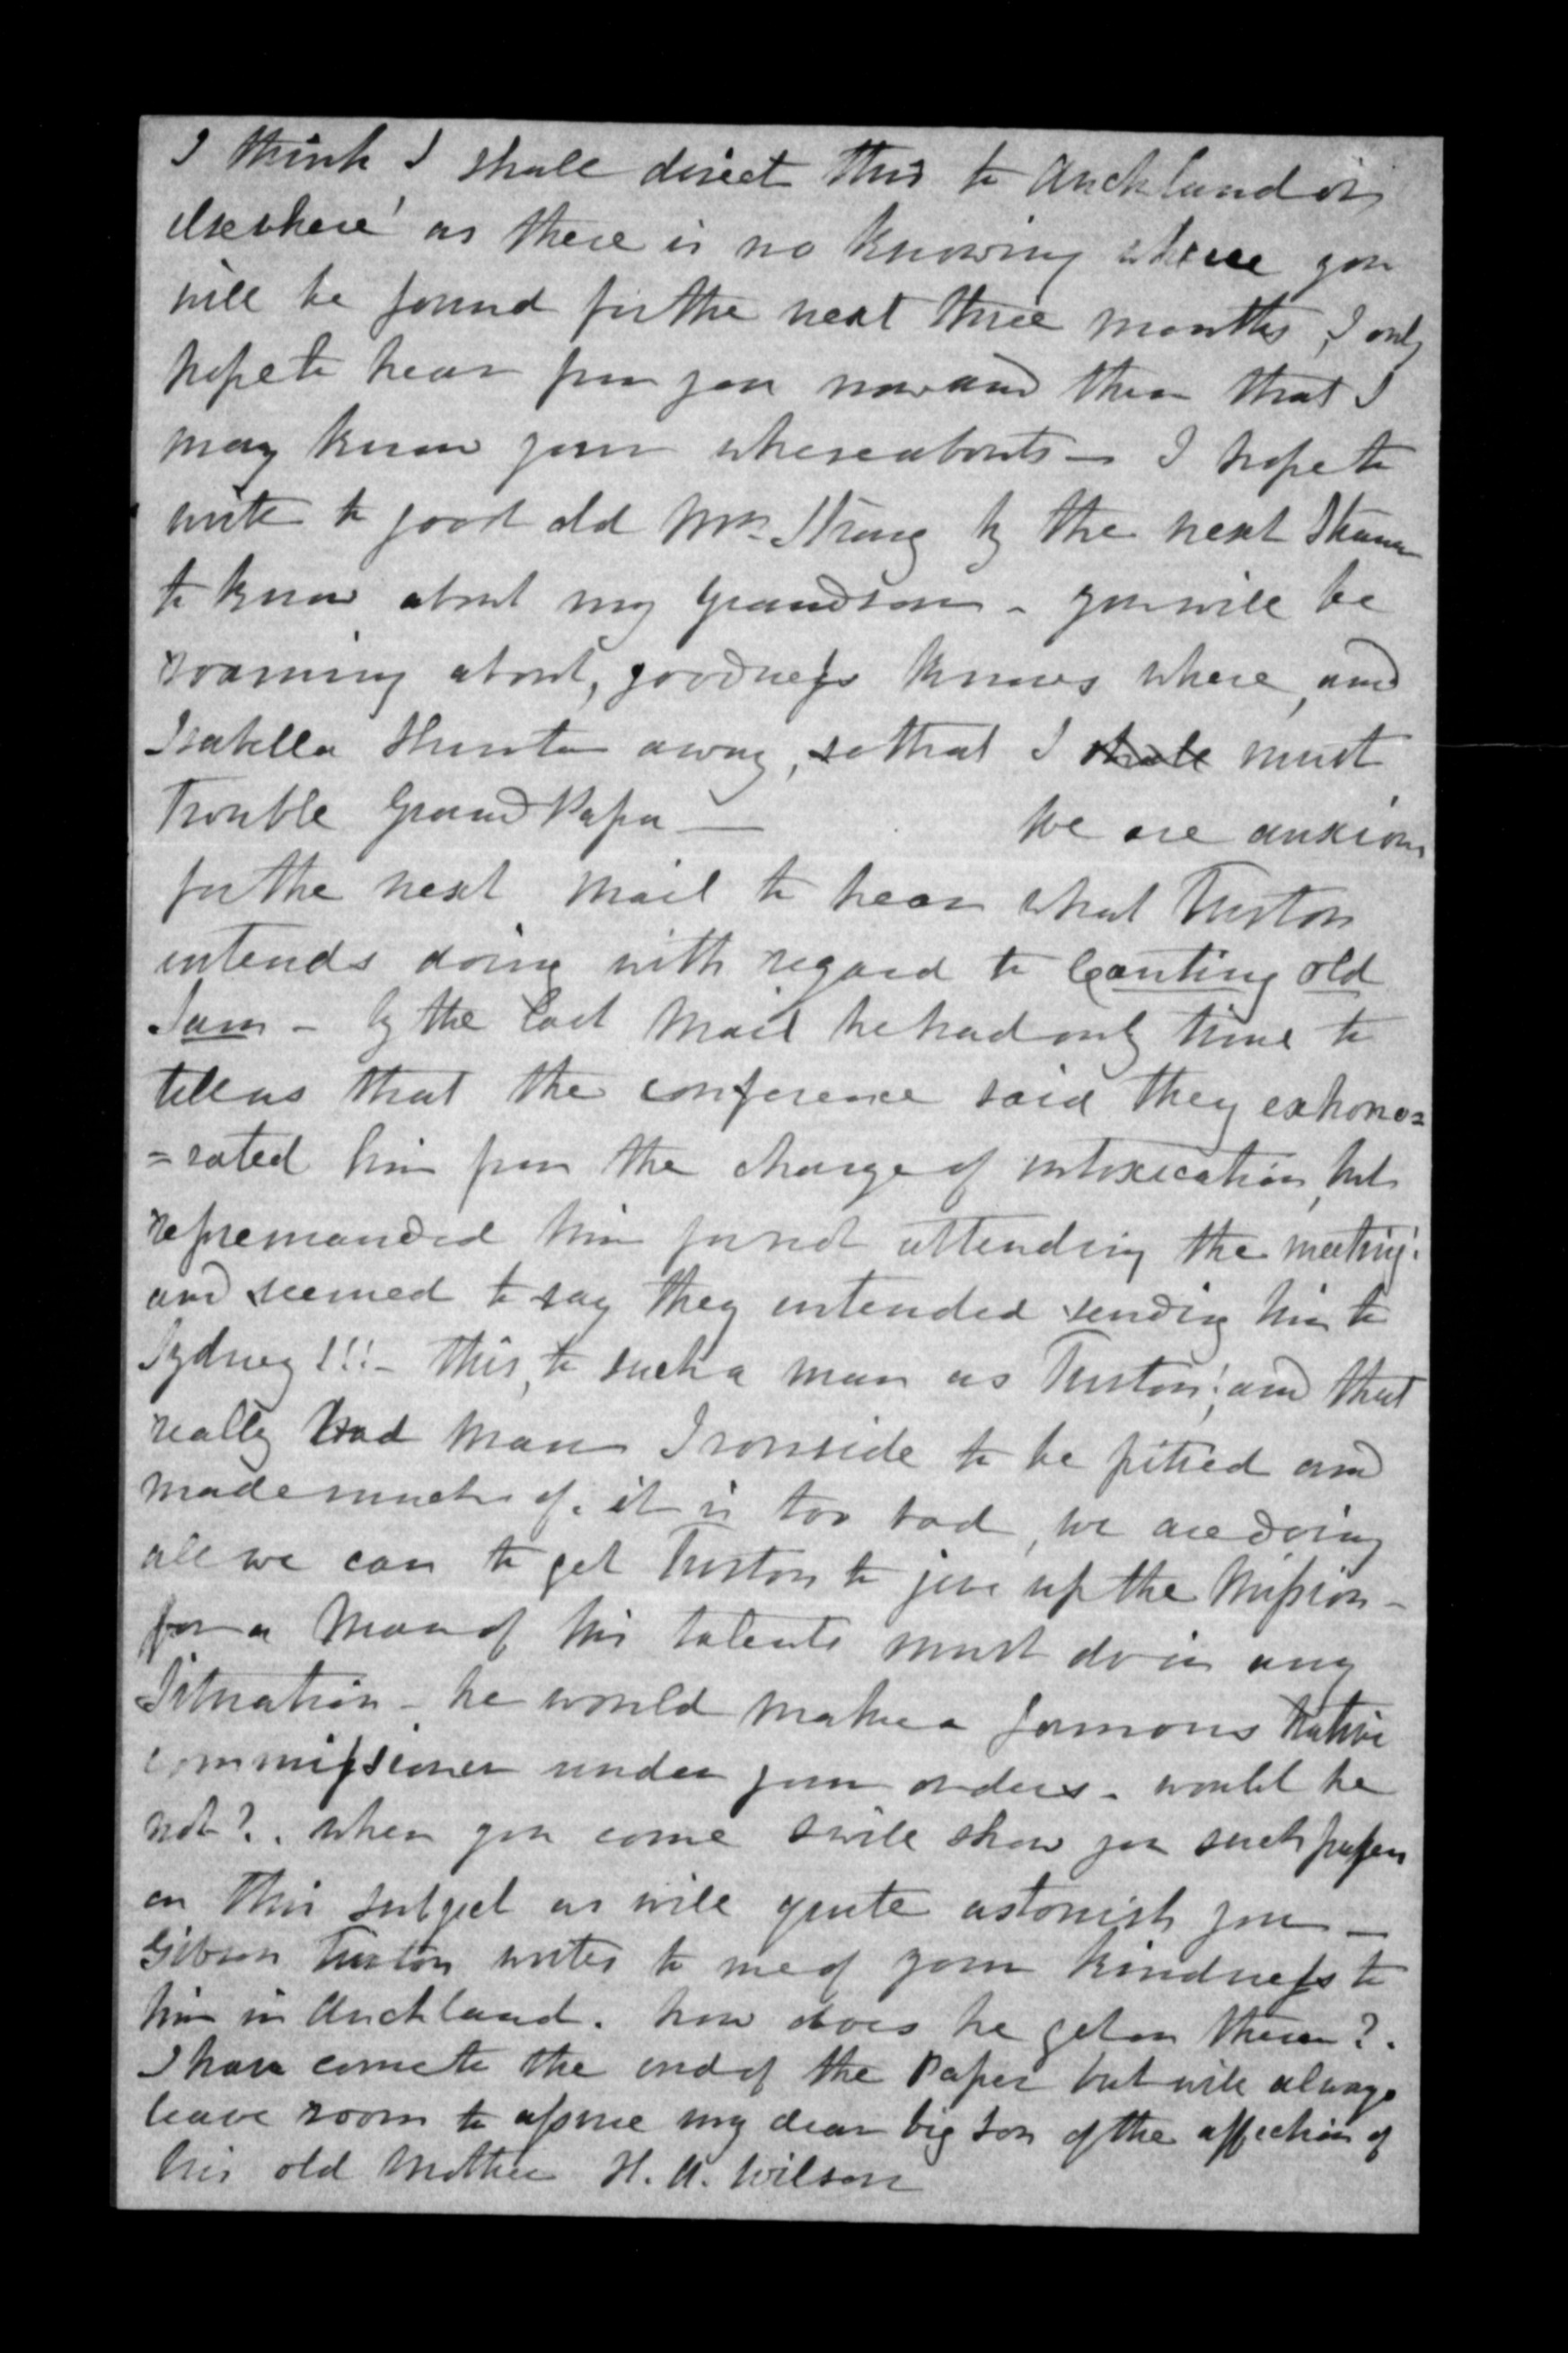 I think I shall direct this to Auckland or
elsewhere' as there is no knowing where you
will be found for the next three months, I only
hope to hear from you now and then that I
may know your whereabouts — I hope to
write to good old Mrs. Strang by the next Steamer
to know about my Grandson - you will be
roaming about, goodness knows where, and
Isabella Shurton away, so that I shall must
Trouble Grand Papa — We are anxious
for the next mail to hear what Turton
intends doing with regard to Canting old
Sam - by the last mail he had only time to
tell us that the conference said they exhono=
=rated him from the charge of intoxication, but
repremanded him for not attending the meeting!
and seemed to say they intended sending him to
Sydney!!! - this, to such a man as Turton! and that
really bad man Ironside to be pitied and
made much of. it is too bad, we are doing
all we can to get Turton to give up the Mission -
for a Man of his talents must do in any
Situation - he would make a famous Native
commissioner under your orders - would he
not?. when you come I will show you such papers
on this subject as will quite astonish you —
Gibson Turton writes to me of your kindness to
him in Auckland. how does he get on there?.
I have come to the end of the Paper but will always
leave room to assure my dear big son of the affection of
his old Mother H. A. Wilson